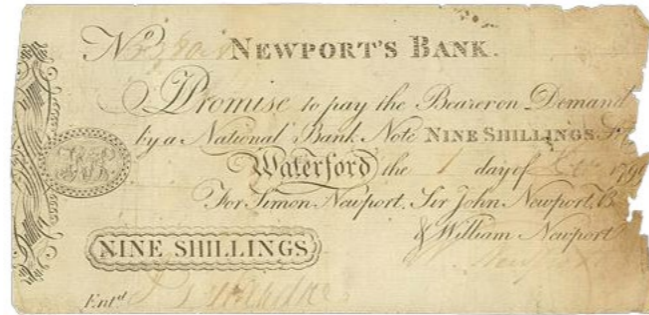 No NEWPORT'S BANK.
I Promise to pay the Bearer on Demand
by a National Bank Note NINE SHILLINGS
Waterford the 1 day of 179
For Simon Newport, Sir John Newport, B
& William Newport
NINE SHILLINGS
Entd